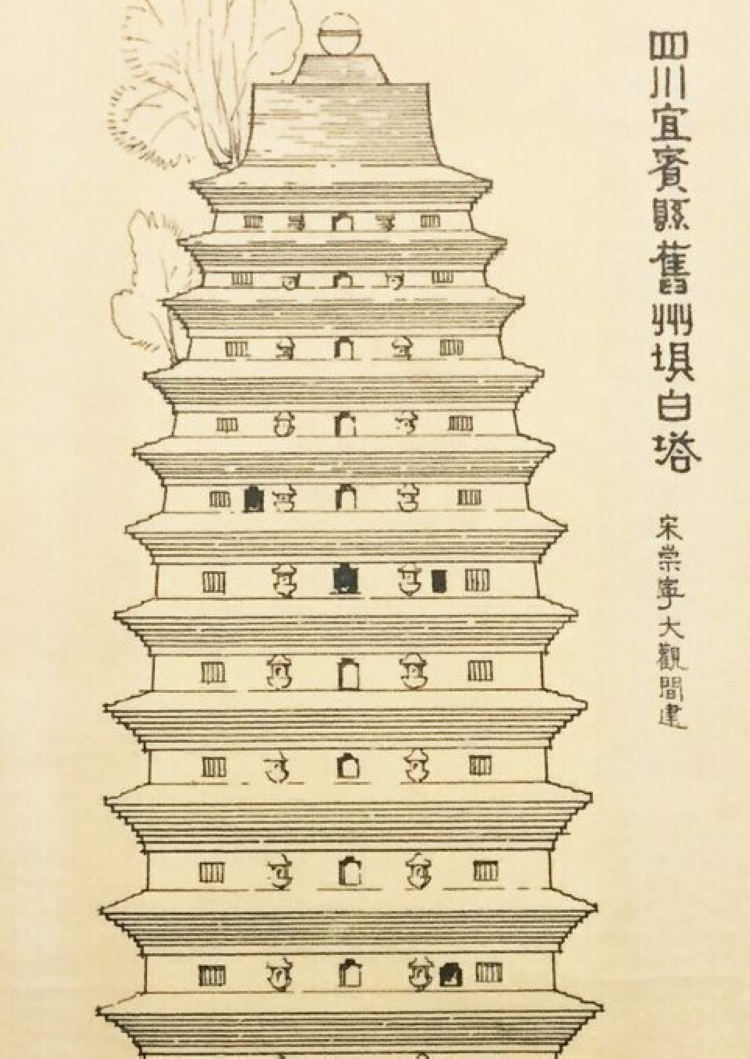 四川宜賓縣舊州垻白塔
宋崇寧大觀間建